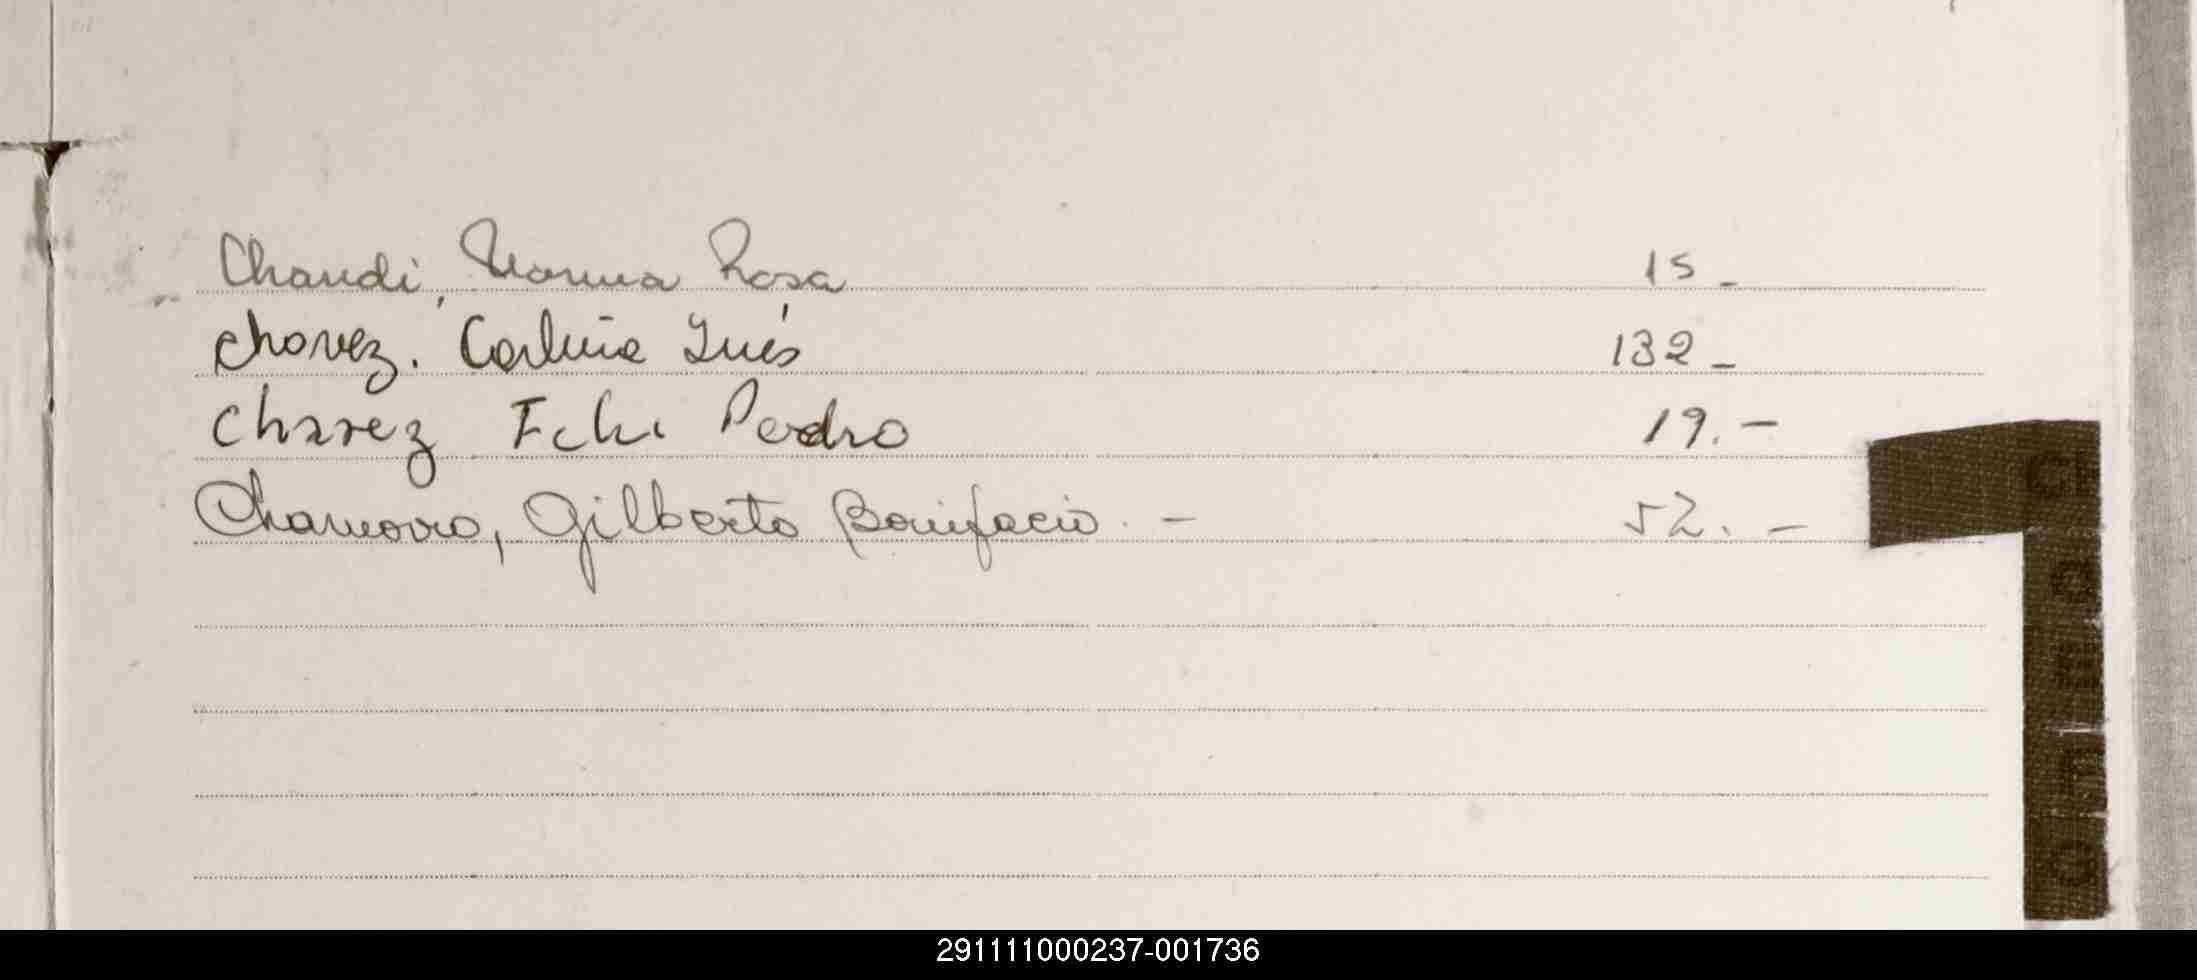 Chaudi, Norma Rosa 15 -
Chavez. Carlina Inés 132 -
Chavez Pedro 19. -
Chamorro, Gilberto Bonifacio. - 52. -
291111000237-001736